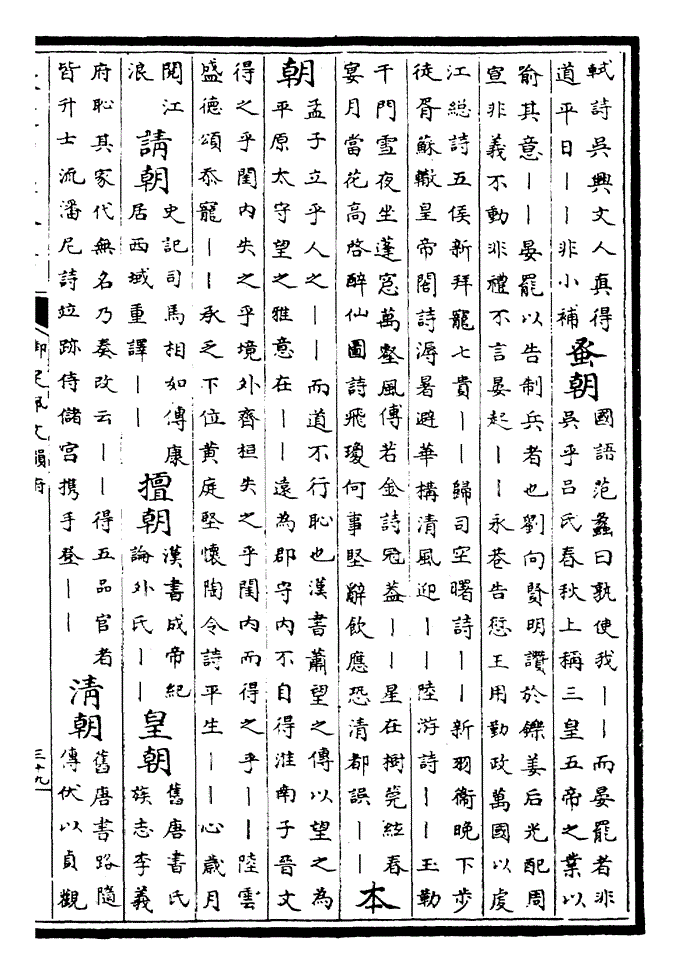 軾詩吳興文人真得
道平日丨丨非小補
蚤朝
國語范蠡曰孰使我丨丨而晏罷者非
吳乎呂氏春秋上稱三皇五帝之業以
喻其意丨丨晏罷以告制兵者也劉向賢明讚於鑠姜后光配周
宣非義不動非禮不言晏起丨丨永巷告愆王用勤政萬國以虔
江總詩五侯新拜寵七貴丨丨歸司空曙詩丨丨新羽衞晚下步
徒胥蘇轍皇帝閤詩溽暑避華構清風迎丨丨陸游詩丨丨玉勒
千門雪夜坐蓬窓萬壑風傳若金詩冠蓋丨丨星在樹筦絃春
宴月當花高啓醉仙圖詩飛瓊何事堅辭飲應恐清都誤丨丨
本
朝
孟子立乎人之丨丨而道不行恥也漢書蕭望之傳以望之為
平原太守望之雅意在丨丨遠為郡守內不自得淮南子晉文
得之乎閨內失之乎境外齊桓失之乎閨內而得之乎丨丨陸雲
盛德頌忝寵丨丨承乏下位黃庭堅懷陶令詩平生丨丨心歲月
閱江
浪
請朝
史記司馬相如傳康
居西域重譯丨丨
擅朝
漢書成帝紀
論外氏丨丨
皇朝
舊唐書氏
族志李義
府恥其家代無名乃奏改云丨丨得五品官者
皆升士流潘尼詩竝跡侍儲宮携手登丨丨
清朝
舊唐書路隨
傳伏以貞觀
御定佩文韻府
三十九